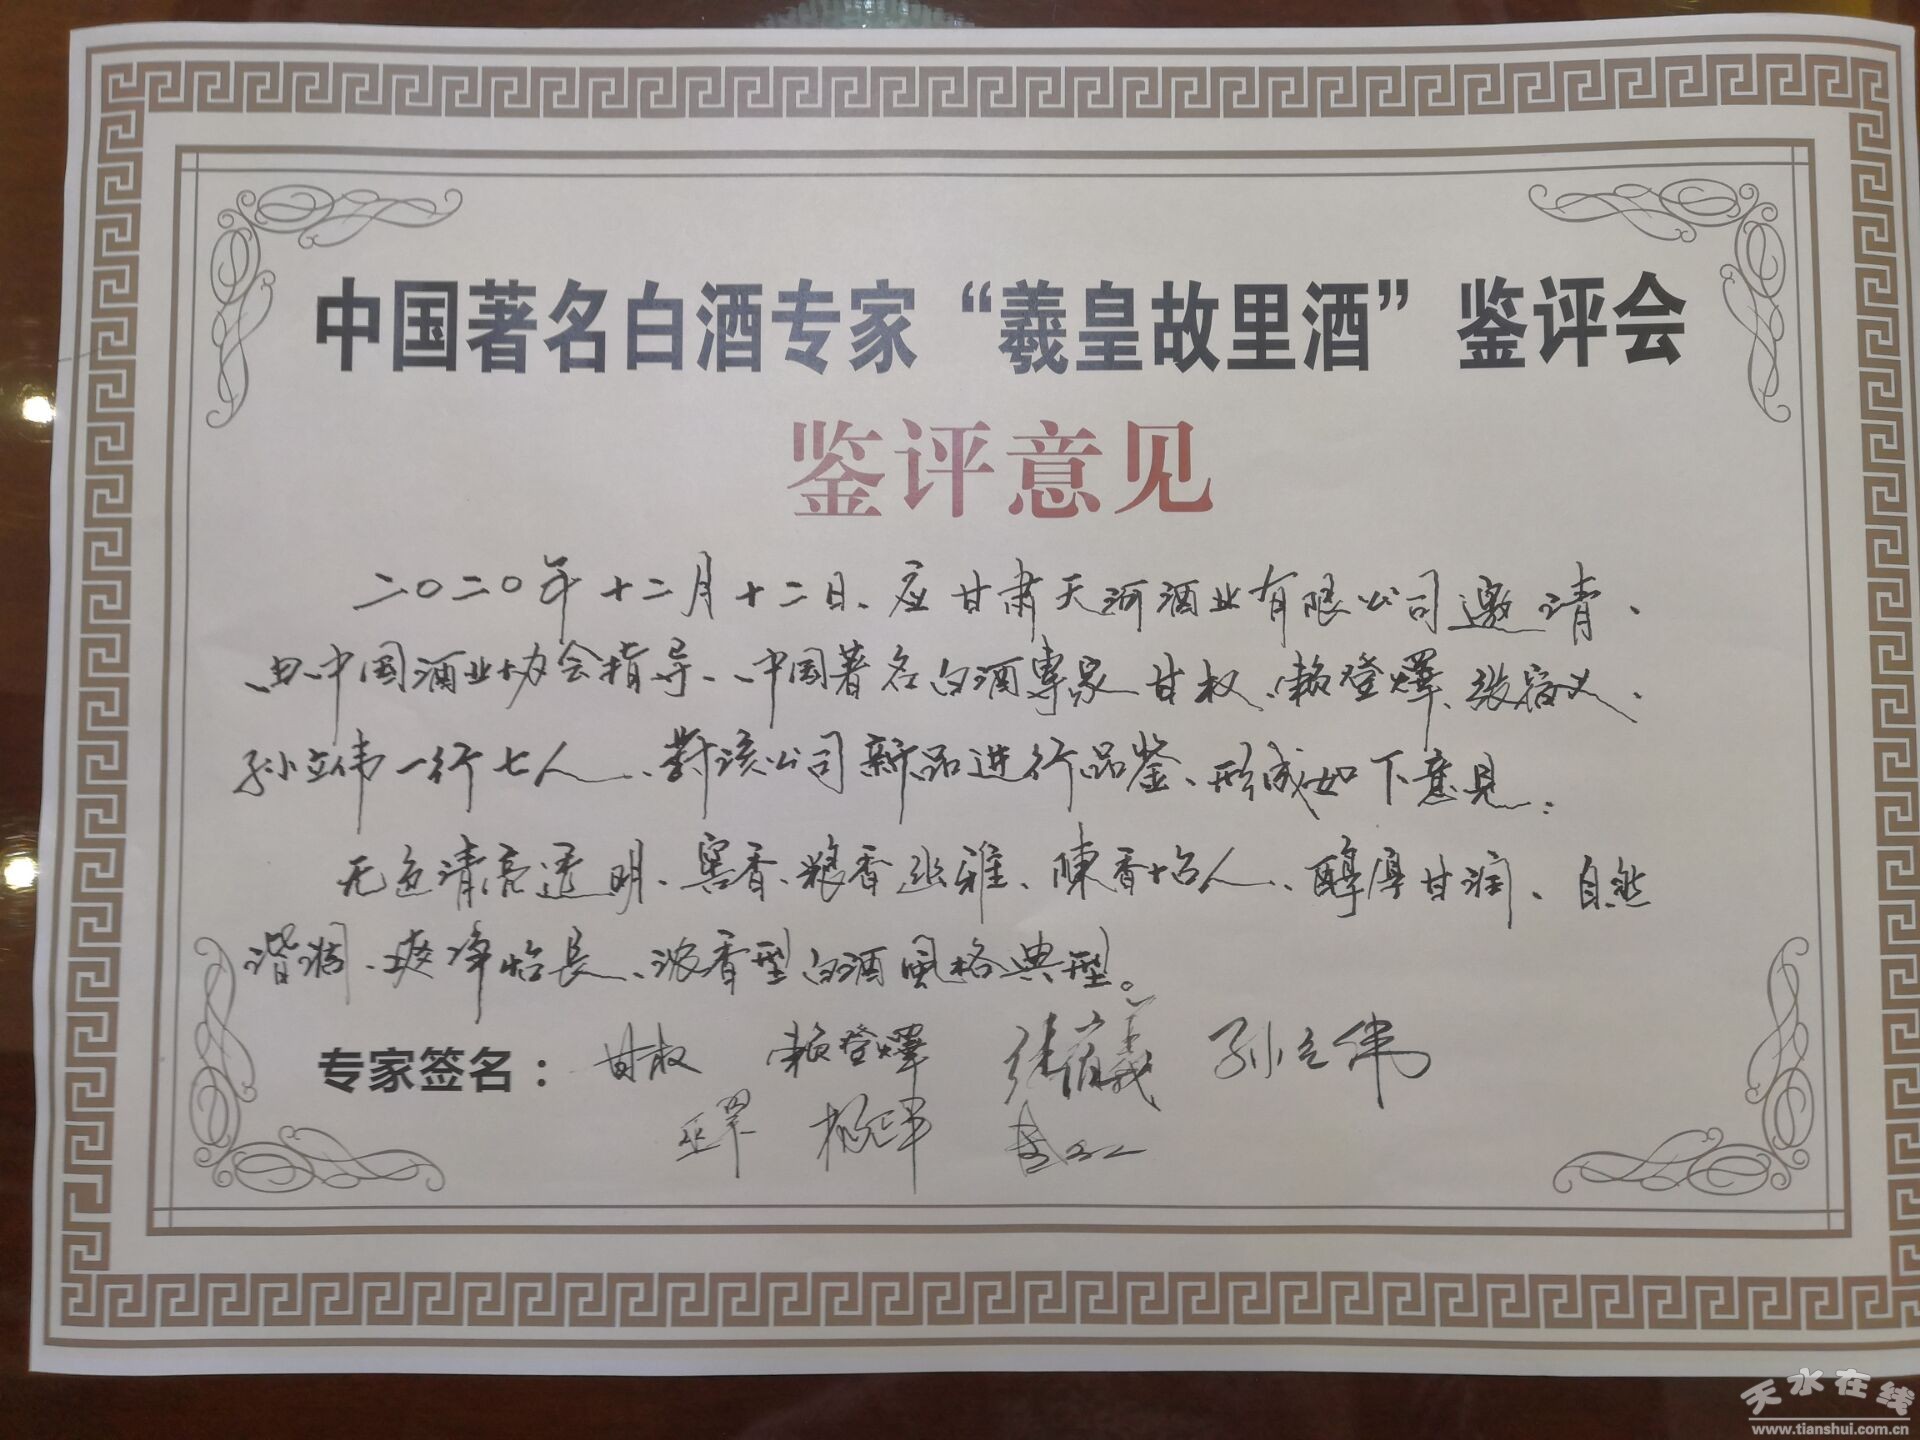 中国著名白酒专家“羲皇故里酒”鉴评会
鉴评意见
二〇二〇年十二月十二日、应甘肃天河酒业有限公司邀请、
由中国酒业协会指导、中国著名白酒專家甘权、赖登燡、张宿义、
孙立伟一行七人、對该公司新品进行品鉴、形成如下意见:
无色清亮透明、窖香、粮香幽雅、陳香怡人、醇厚甘润、自然
谐调、爽净怡長、浓香型白酒風格典型。
专家签名: 甘权 赖登燡 张宿義 孙立伟
天水在线
www.tianshui.com.cn